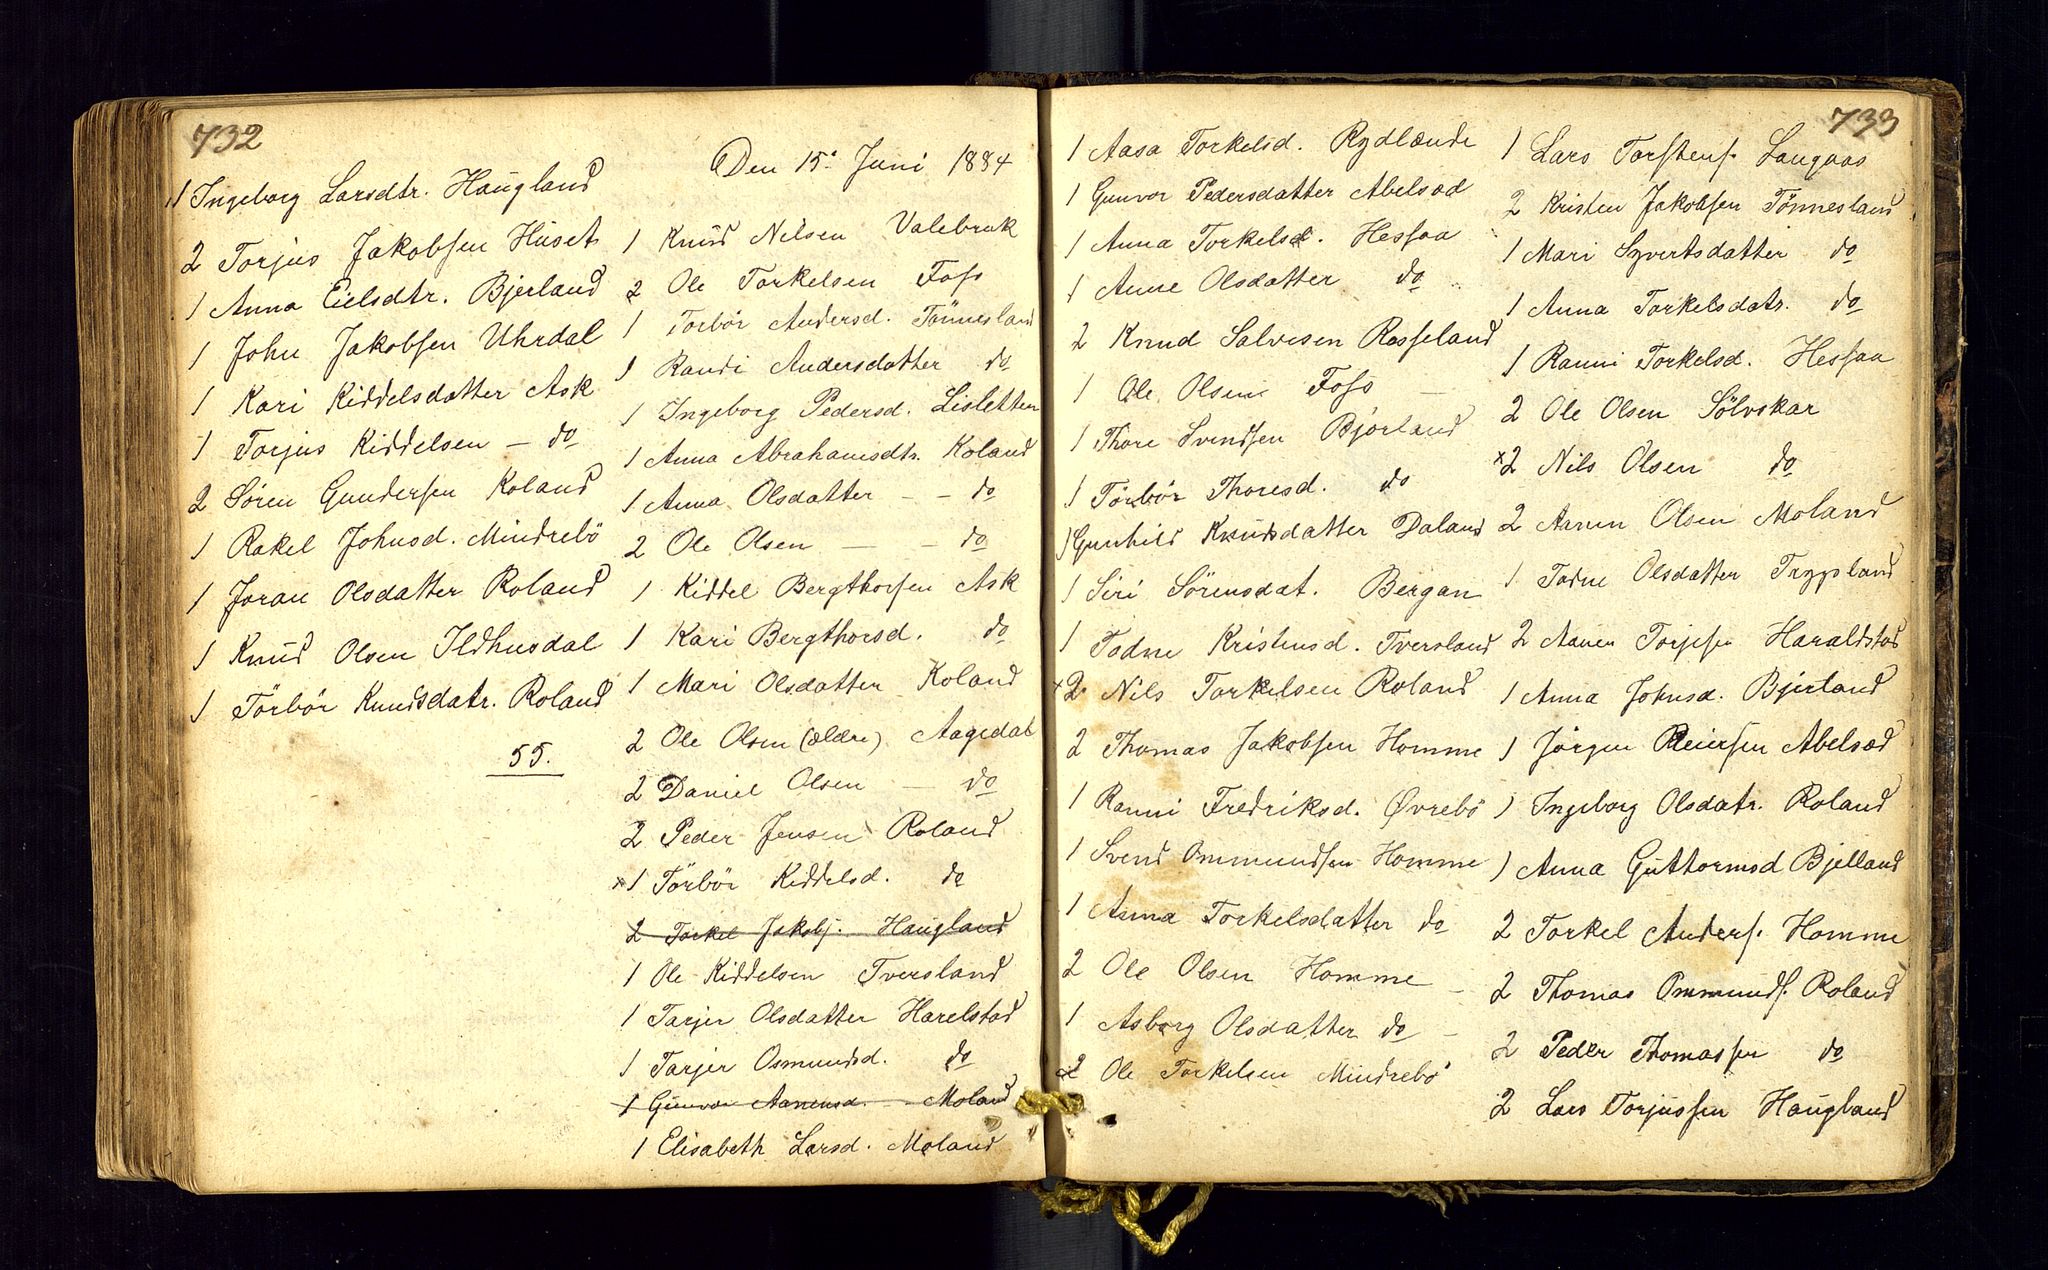 732
1 Ingeborg Larsdtr. Haugland
2 Torjus Jakobsen Huset
1 Anna Eielsdtr. Bjerland
1 John Jakobsen Uhrdal
1 Kari Kiddelsdatter Ask
1 Torjus Kiddelsen — do
2 Sören Gundersen Roland
1 Rakel Johnsd. Mindrebö
1 Joran Olsdatter Roland
1 Knud Olsen Ildhusdal
1 Törbör Knudsdatr. Roland
55.
Den 15. Juni 1884
1 Knud Nilsen Valebruk
2 Ole Torkelsen Foss
1 Torbör Andersd. Tönnesland
1 Randi Andersdatter do
1 Ingeborg Pedersd. Lisletten
1 Anna Abrahamsdtr. Roland
1 Anna Olsdatter — — do
2 Ole Olsen — — do
1 Kiddel Bergthorsen Ask
1 Kari Bergthorsd. do
1 Mari Olsdatter Roland
2 Ole Olsen (ældre) Aagedal
2 Daniel Olsen — do
2 Peder Jensen Roland
x1 Törbör Kiddelsd. do
2 Torkel Jakobs. Haugland
1 Ole Kiddelsen Tversland
1 Tarjer Olsdatter Harelstad
1 Tarjer Osmundsd. do
1 Gunvor Aanensd. — Moland
1 Elisabeth Larsd. Moland
733
1 Aasa Torkelsd. Rydlænde
1 Gunvor Pedersdatter Abelsæd
1 Anna Torkelsd. Hessaa
1 Anne Olsdatter do
2 Knud Salvesen Rosseland
1 Ole Olsen Foss —
1 Thore Svendsen Bjorland
1 Törbör Thoresd. do
1 Gunhild Knudsdatter Daland
1 Siri Sörensdat. Bergan
1 Todne Kristensd. Tversland
x2 Nils Torkelsen Roland
2 Thomas Jakobsen Homme
1 Ranni Fredriksd. Øvrebö
1 Svend Ommundsen Homme
1 Anna Torkelsdatter do
2 Ole Olsen Homme —
1 Asborg Olsdatter do —
x2 Ole Torkelsen Mindrebö
1 Lars Torstens. Laugaas
2 Kristen Jakobsen Tönnesland
1 Mari Syvertsdatter do
1 Anna Torkelsdatr. do
1 Ranni Torkelsd. Hessaa
2 Ole Olsen Sölvskar
x2 Nils Olsen do
2 Aanen Olsen Moland
1 Todne Olsdatter Trypsland
2 Aanen Torjesen Haraldstad
1 Anna Johnsd. Bjerland
1 Jörgen Reiersen Abelsæd
1 Ingeborg Olsdatr. Roland
1 Anna Guttormsd Bjelland
2 Torkel Anders. Homme
2 Thomas Ommunds. Roland
2 Peder Thomassen do
2 Lars Torjussen Haugland